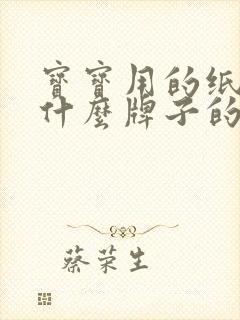 寶寶用的纸
什麼牌子的
蔡荣生